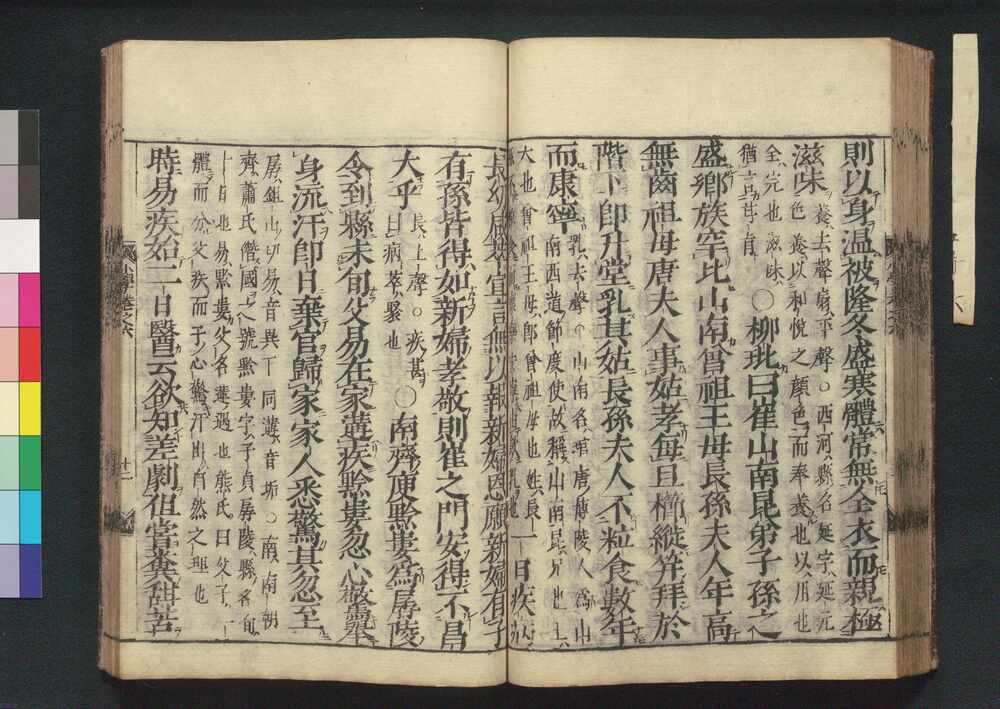 則以身溫被隆冬盛寒體常無全衣而親極
滋味養去聲扇平聲○西河縣名延字延元
色養以和悅之顏色而奉養也以用也
全完也滋味
○柳玭曰崔山南昆弟子孫之
盛鄉族罕比山南曾祖王母長孫夫人年高
無齒祖母唐夫人事姑孝每旦櫛縰笄拜於
階下卽升堂乳其姑長孫夫人不粒食數年
而康寧乳去聲○山南名琯唐博陵人爲山
南西道節度使故稱山南昆兄也
大也曾祖王母卽曾祖母也姓長
一日疾病
長幼咸萃宣言無以報新婦恩願新婦有子
有孫皆得如新婦孝敬則崔之門安得不昌
大乎長上聲○疾甚
曰病萃聚也
○南齊庾黔婁爲孱陵
令到縣未旬父易在家遘疾黔婁忽心驚舉
身流汗卽日棄官歸家家人悉驚其忽至
孱鉏山切易音異下同遘音垢○南南朝
齊蕭氏僭國之號黔婁字子貞孱陵縣名旬
十日也易黔婁父名遘遇也熊氏曰父子一
體而分父疾而子心驚汗出自然之理也
時易疾始二日醫云欲知差劇但嘗糞甜苦
小學 卷之六
十二